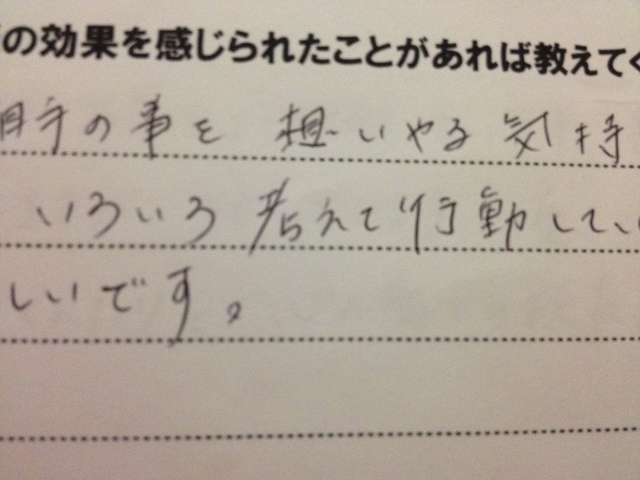 の効果を感じられたことがあれば教えてく
相手の事を 想いやる 気持
いろいろ 考えて行動してい
しいです。